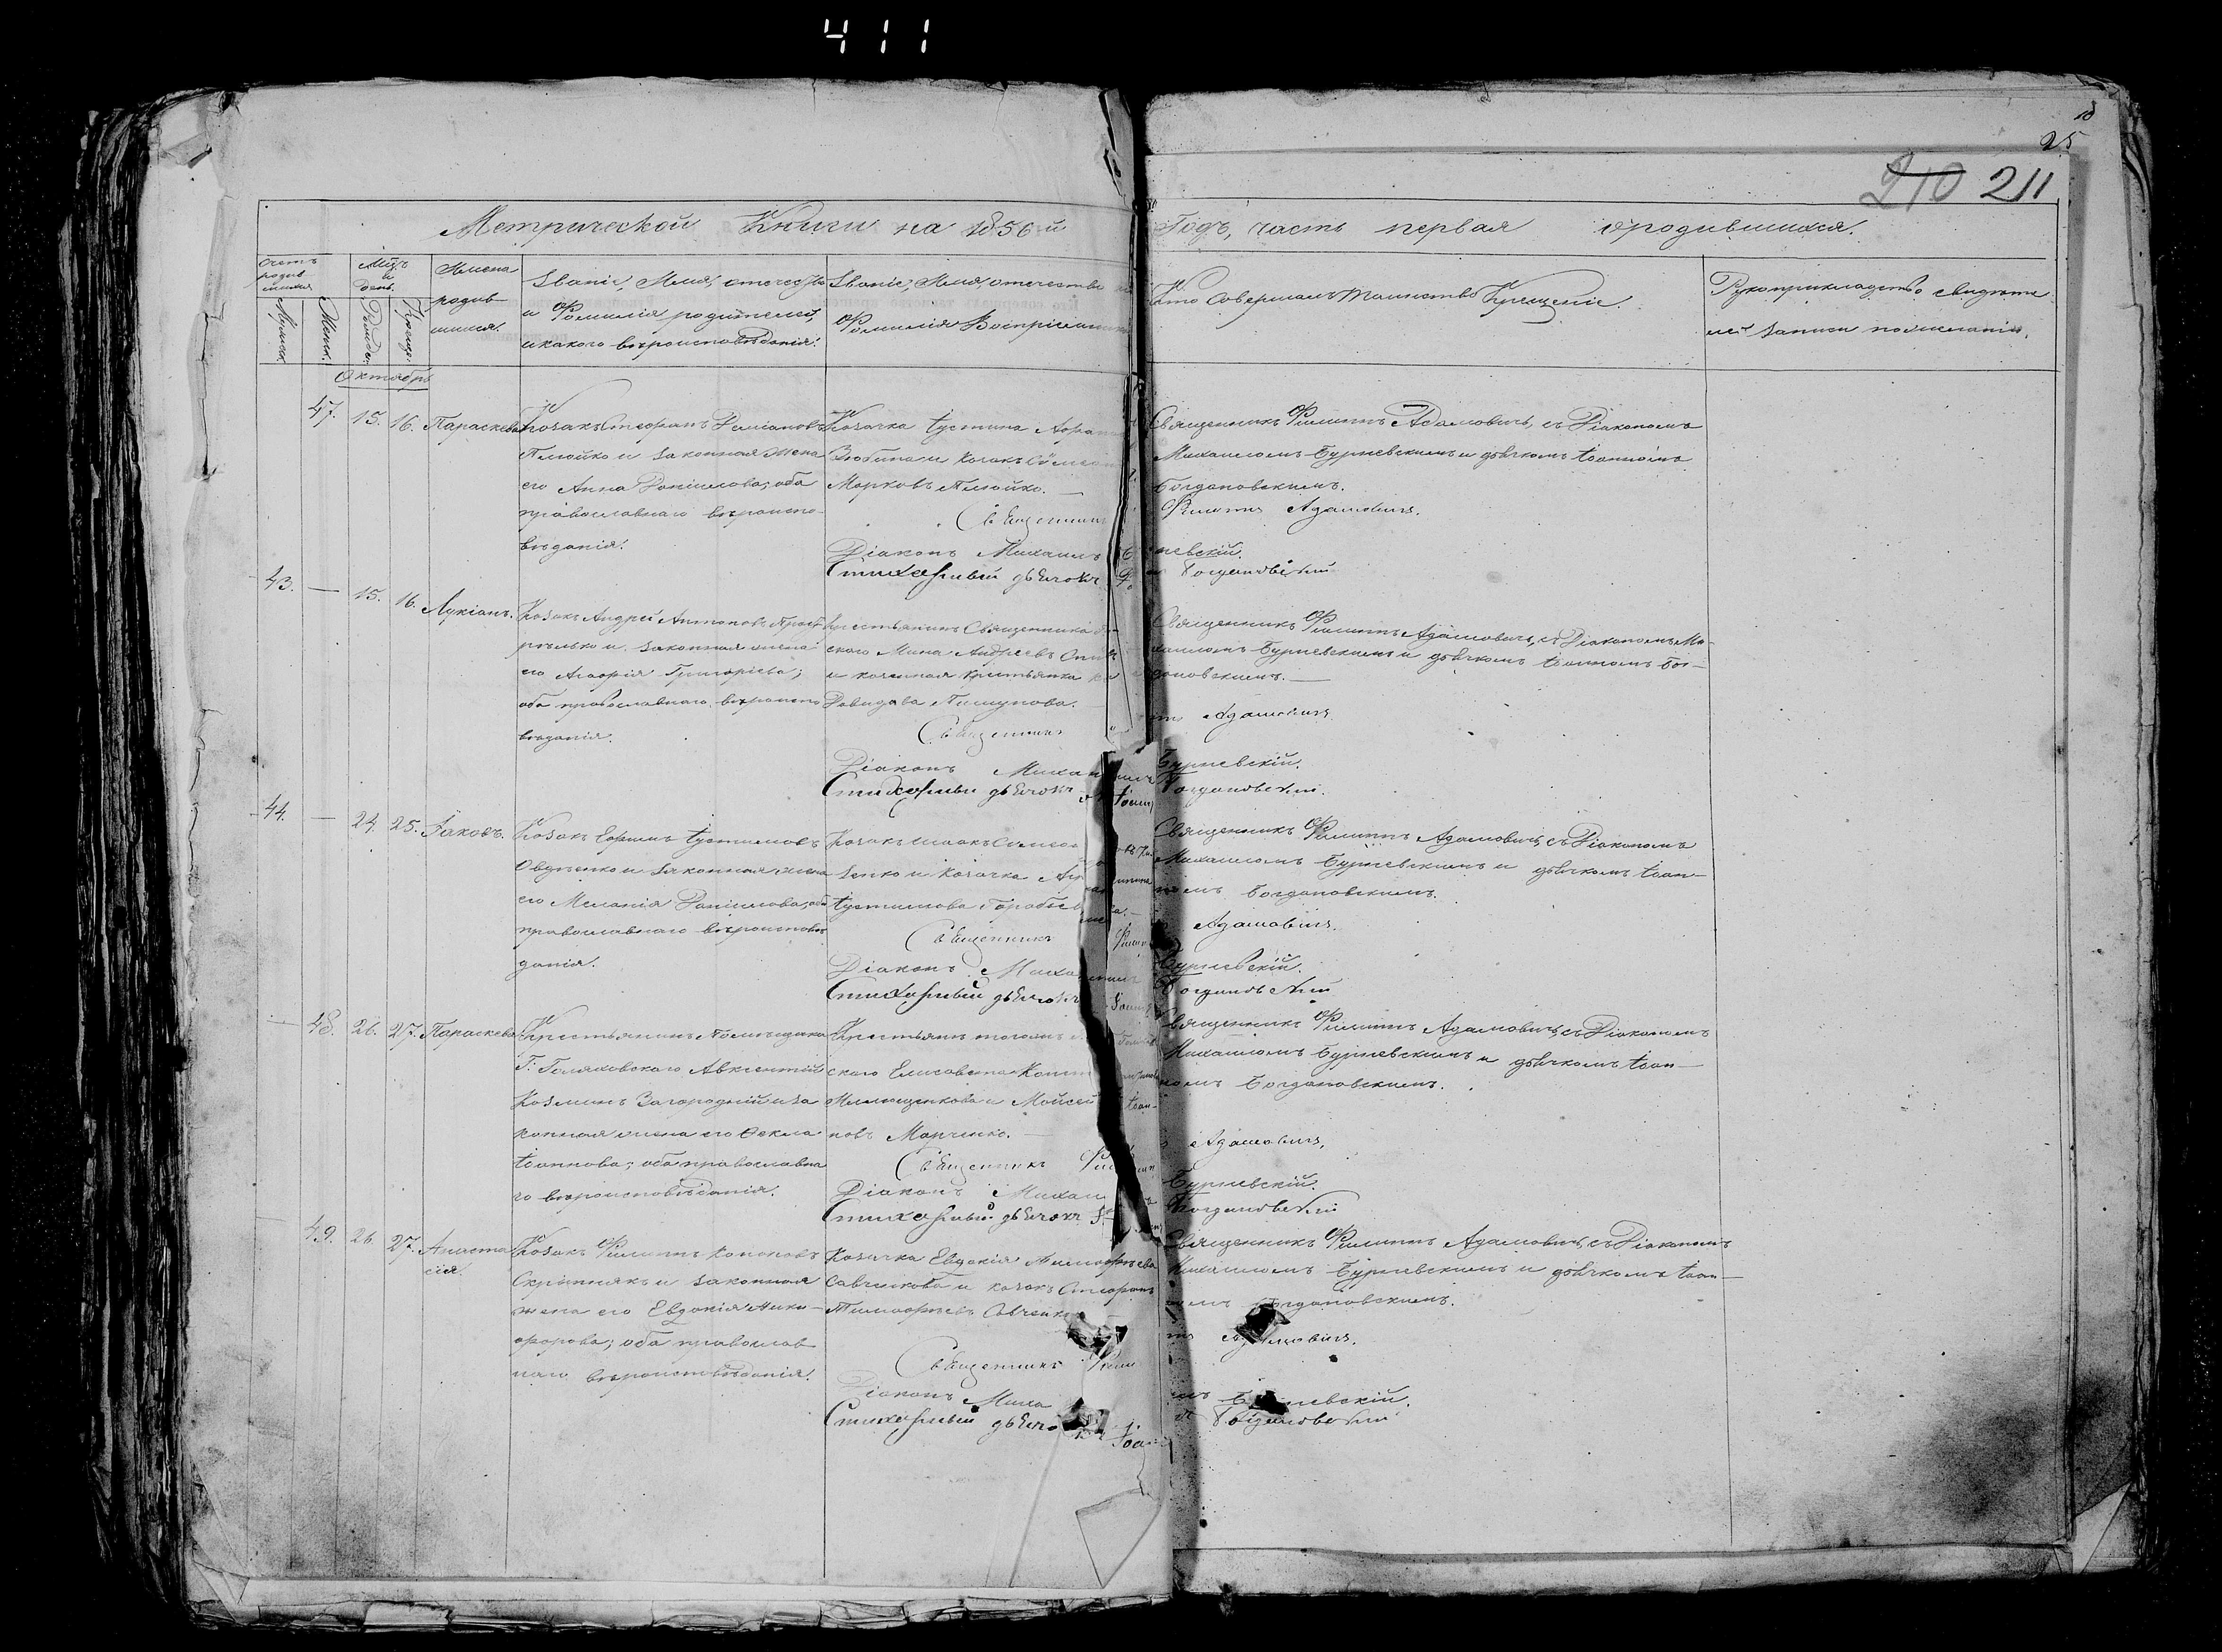 411
18
25
210 211
Метрической Книги на 1856-й Годъ, часть первая о родившихся.
Счетъ родив шихся
Мужск.
Женск.
Мѣсяцъ и день.
Рожден.
Крещ.
Имена
родив-
шихся.
Званіе, Имя, отчество
и Фамилія родителей,
и какого вѣроисповѣданія.
Званіе, Имя, отчество
Фамилія Воспріемник
Кто Совершалъ Таинство Крещеніе.
Рукоприкладство свидѣте
лей записи по желанію.
Октябрь
47. 15. 16. Параскева
Козакъ Стефанъ Даміановъ
и законная жена
его Анна Даніилова; оба
православнаго вѣроиспо-
вѣданія.
Козачка Іустина
и козакъ Сѵмеон
Марковъ
Священник
Діаконъ Михаилъ
Стихарный дьячокъ
Священникъ Филиппъ Адамовичъ, съ Діакономъ
Михаиломъ Бурневскимъ и дьячкомъ Іоанномъ
Богдановскимъ.
Филиппъ Адамовичъ.
невскій.
Богдановскій
43. — 15. 16. Лукіанъ.
Козакъ Андрей Антоновъ
и законная жена
его Агафія Григоріева;
оба православнаго вѣроиспо
вѣданія.
Крестьянинъ Священника
ского Мина Андреевъ
и козенная крестьянка
Давидова
Священникъ
Діаконъ Михаилъ
Стихарный дьячокъ Іоанн
Священникъ Филиппъ Адамовичъ, съ Діакономъ Ми-
хаиломъ Бурневскимъ и дьячкомъ Іоанномъ Бог-
дановскимъ.—
Адамовичъ
Бурневскій.
Богдановскій.
44. — 24. 25. Іаковъ.
Козакъ Ефимъ Іустиновъ
Овдѣенко и законная жена
его Меланія Даніилова, оба
православнаго вѣроисповѣ
данія.
Козакъ Исаакъ Симеон
зенко и козачка
Іустинова
Священникъ Филип
Діаконъ Михаилъ
Стихарный дьячокъ Іоанн
Священникъ Филиппъ Адамовичъ, съ Діакономъ
Михаиломъ Бурневскимъ и дьячкомъ Іоан-
номъ Богдановскимъ.
Адамовичъ.
Бурневскій.
Богдановскій
— 48. 26. 27. Параскева
Крестьянинъ помѣщика
Г. Голяховского Авксентій
Козминъ Загородній и за
конная жена его Ѳекла
Іоаннова; оба православна
го вѣроисповѣданія.
Крестьяне тогожъ
ского Елисавета
и Мойсей Іоан-
новъ Марченко. —
Священникъ
Діаконъ Михаил
Стихарный дьячокъ
Священникъ Филиппъ Адамовичъ, съ Діакономъ
Михаиломъ Бурневскимъ и дьячкомъ Іоан-
номъ Богдановскимъ.
Адамовичъ,
Бурневскій.
Богдановскій
— 49. 26. 27. Анаста
сія.
Козакъ Филиппъ Кононовъ
Скрипнякъ и законная
жена его Евдокія Ники-
форова; оба православ
наго вѣроисповѣданія.
Козачка Евдокія Тимофѣева
Савченкова и козакъ Стефанъ
Тимофѣевъ Савченко
Священникъ Фили
Діаконъ Миха
Стихарный дьячокъ Іоан
Священникъ Филиппъ Адамовичъ, съ Діакономъ
Михаиломъ Бурневскимъ и дьячкомъ Іоан-
номъ Богдановскимъ.
Адамовичъ.
Бурневскій.
Богдановскій